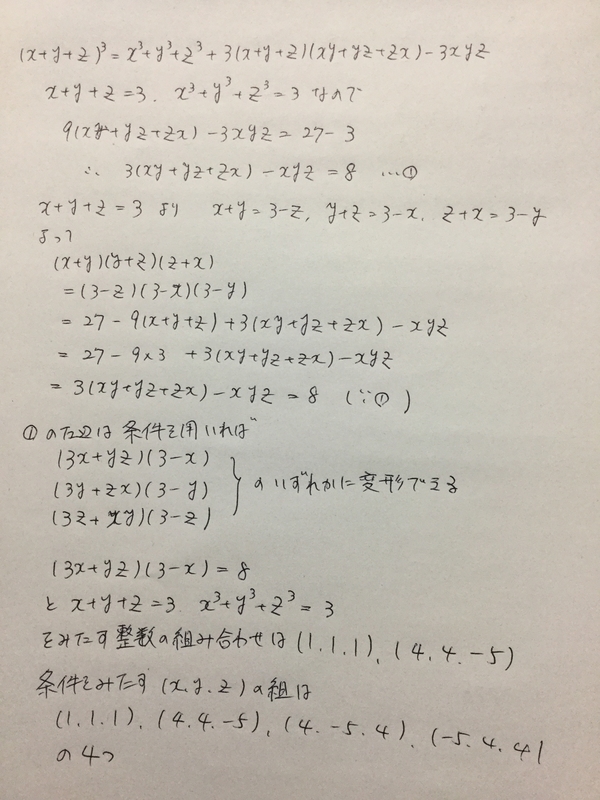 (x+y+z)³=x³+y³+z³+3(x+y+z)(xy+yz+zx)-3xyz
x+y+z=3. x³+y³+z³=3 なので
9(xy+yz+zx)-3xyz=27-3
∴ 3(xy+yz+zx)-xyz=8 …①
x+y+z=3 より x+y=3-z, y+z=3-x. z+x=3-y
よって
(x+y)(y+z)(z+x)
=(3-z)(3-x)(3-y)
=27-9(x+y+z)+3(xy+yz+zx)-xyz
=27-9×3+3(xy+yz+zx)-xyz
=3(xy+yz+zx)-xyz=8 (∵①)
①の左辺は条件を用いれば
(3x+yz)(3-x)
(3y+zx)(3-y) のいずれかに変形できる
(3z+xy)(3-z)
(3x+yz)(3-x)=8
と x+y+z=3 x³+y³+z³=3
をみたす整数の組み合わせは(1.1.1), (4.4.-5)
条件をみたす(x.y.z)の組は
(1.1.1), (4.4.-5), (4.-5.4), (-5.4.4)
の4つ